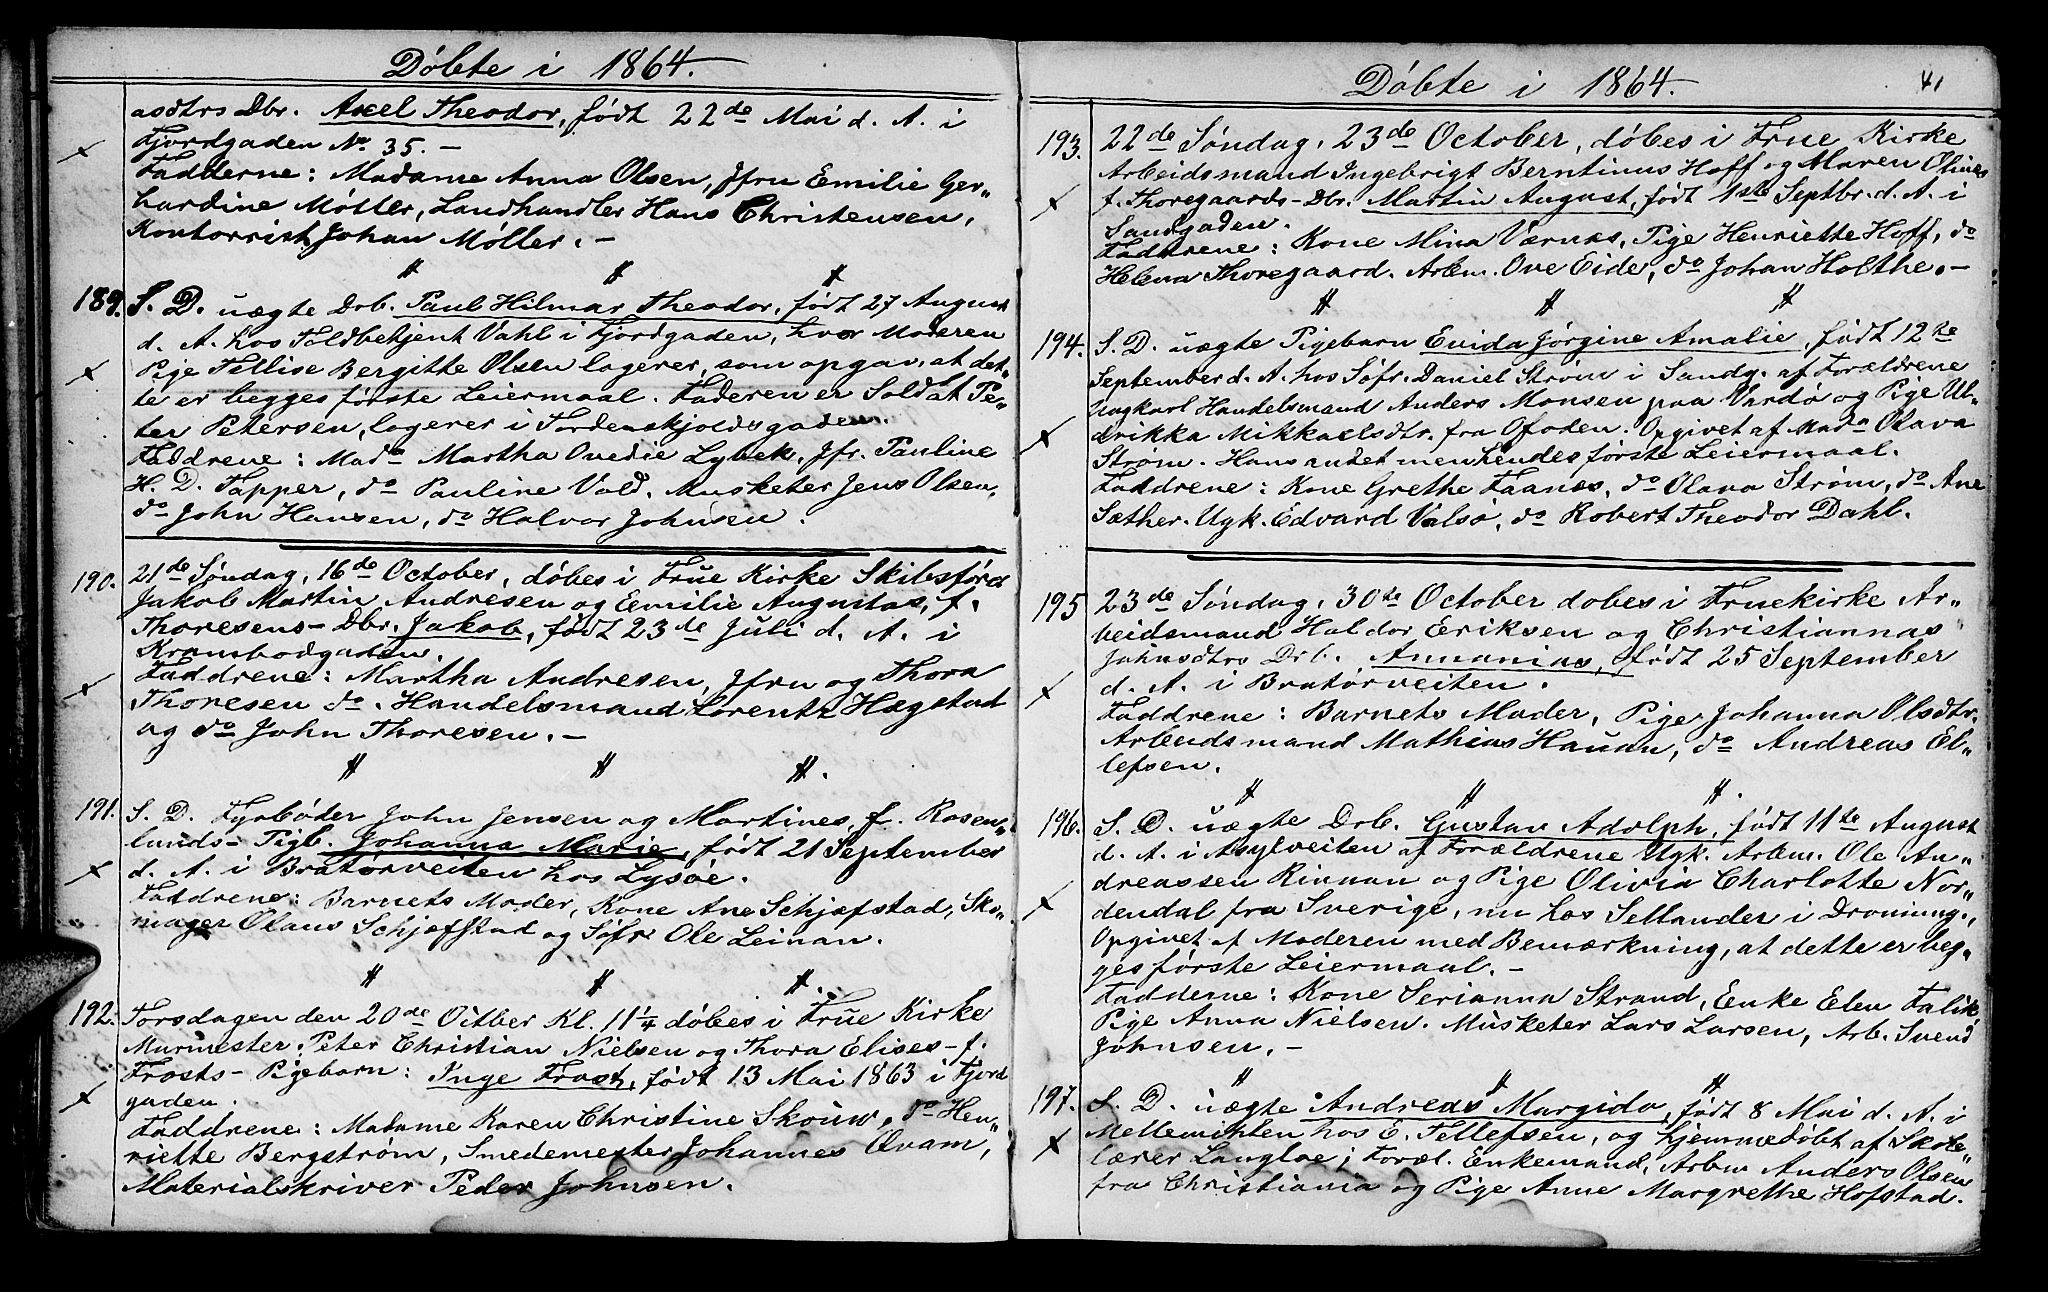 Döbte i 1864.
asdtrs Dbr. Axel Theodor, født 22de Mai d. A. i
Fjordgaden No. 35. -
Fadderne: Madame Anna Olsen, Jfru Emilie Ger„
hardine Møller, Landhandler Hans Christensen,
Kontorrist Johan Møller. -
189. S. D. uægte Drb. Paul Hilmar Theodor, født 27 August
d. A. hos Toldbetjent Vahl i Fjordgaden, hvor Moderen
Pige Fellise Bergitte Olsen logerer, som opgav, at det„
te er begges første Leiermaal. Faderen er Soldat Pe„
ter Petersen, logerer i Tordenskjoldsgaden.
Faddrene: Mada Martha Ovedie Lybek, Jfr. Pauline
H. D. Tapper, do Pauline Vold. Musketer Jens Olsen,
do John Hansen, do Halvor Johnsen.
190. 21de Søndag, 16de October, døbes i Frue Kirke Skibsfører
Jakob Martin Andresen og Emilie Augustas, f.
Thoresens- Dbr. Jakob, født 23de Juli d. A. i
Krambodgaden.
Faddrene: Martha Andresen, Jfru og Thora
Thoresen do. Handelsmand Lorentz Hægstad
og do John Thoresen. -
191. S. D. Fyrbøder John Jensen og Martines, f. Rosen„
lunds- Pigb. Johanna Marie, født 21 September
d. A. i Bratørveiten hos Lysøe.
Faddrene: Barnets Moder, Kone Ane Schjefstad, Sko„
mager Olaus Schjefstad og Søfr Ole Leinan.
192. Torsdagen den 20de Octber Kl. 11 1/4 døbes i Frue Kirke
Murmester Peter Christian Nielsen og Thora Elises- f.
Frosts- Pigebarn: Inge Frost, født 13 Mai 1863 i Fjord
gaden.
Faddrene: Madame Karen Christine Skouw, do Hen„
riette Bergstrøm, Smedemester Johannes Qvam,
Materialskriver Peder Johnsen.
Döbte i 1864. 41
193. 22de Søndag, 23de October, døbes i Frue Kirke
Arbeidsmand Ingebrigt Berntinus Hoff og Maren Olines
f. Thoregaards- Dbr. Martin August, født 1ste Septbr. d. A. i
Sandgaden.
Faddrene: Kone Mina Værnes, Pige Henriette Hoff, do
Helena Thoregaard. Arbm. Ove Eide, do Johan Holthe. -
194. S. D. uægte Pigebarn Evida Jørgine Amalie, født 12te
September d. A. hos Søfr. Daniel Strøm i Sandg. af Forældrene
Ungkarl Handelsmand Anders Monsen paa Vardø og Pige Ul„
drikka Mikkaelsdtr. fra Ofoden. Opgivet af Mada Olava
Strøm. Hans andet men hendes første Leiermaal.
Faddrene: Kone Grethe Faanes, do Olava Strøm, do Ane
Sæther. Ugk. Edvard Valsø, do Robert Theodor Dahl.
195 23de Søndag, 30te October døbes i Fruekirke Ar„
beidsmand Haldor Eriksen og Christiannas
Johnsdtrs Drb. Annanias, født 25 September
d. A. i Bratørveiten.
Faddrene: Barnets Moder, Pige Johanna Olsdtr.
Arbeidsmand Mathias Hauan, do Andreas El„
lefsen.
196. S. D. uægte Drb. Gustav Adolph, født 11te August
d. A. i Asylveiten af Forældrene Ugk. Arbm. Ole An„
dreassen Rinnan og Pige Olivia Charlotte Nor„
dendal fra Sverige, nu hos Sellander i Droning.,
Opgivet af Moderen med Bemærkning, at dette er beg„
ges første Leiermaal. -
Fadderne: Kone Serianna Strand, Enke Elen Falik,
Pige Anna Nielsen. Musketer Lars Larsen, Arb. Svend
Johnsen. -
197. S. D. uægte Andreas Margido, født 8 Mai d. A. i
Mellemihlen hos E. Tellefsen, og hjemmedøbt af Skole„
lærer Langloe; Foræl. Enkemand, Arbm Anders Olsen
fra Christiania og Pige Anne Margrethe Hofstad.